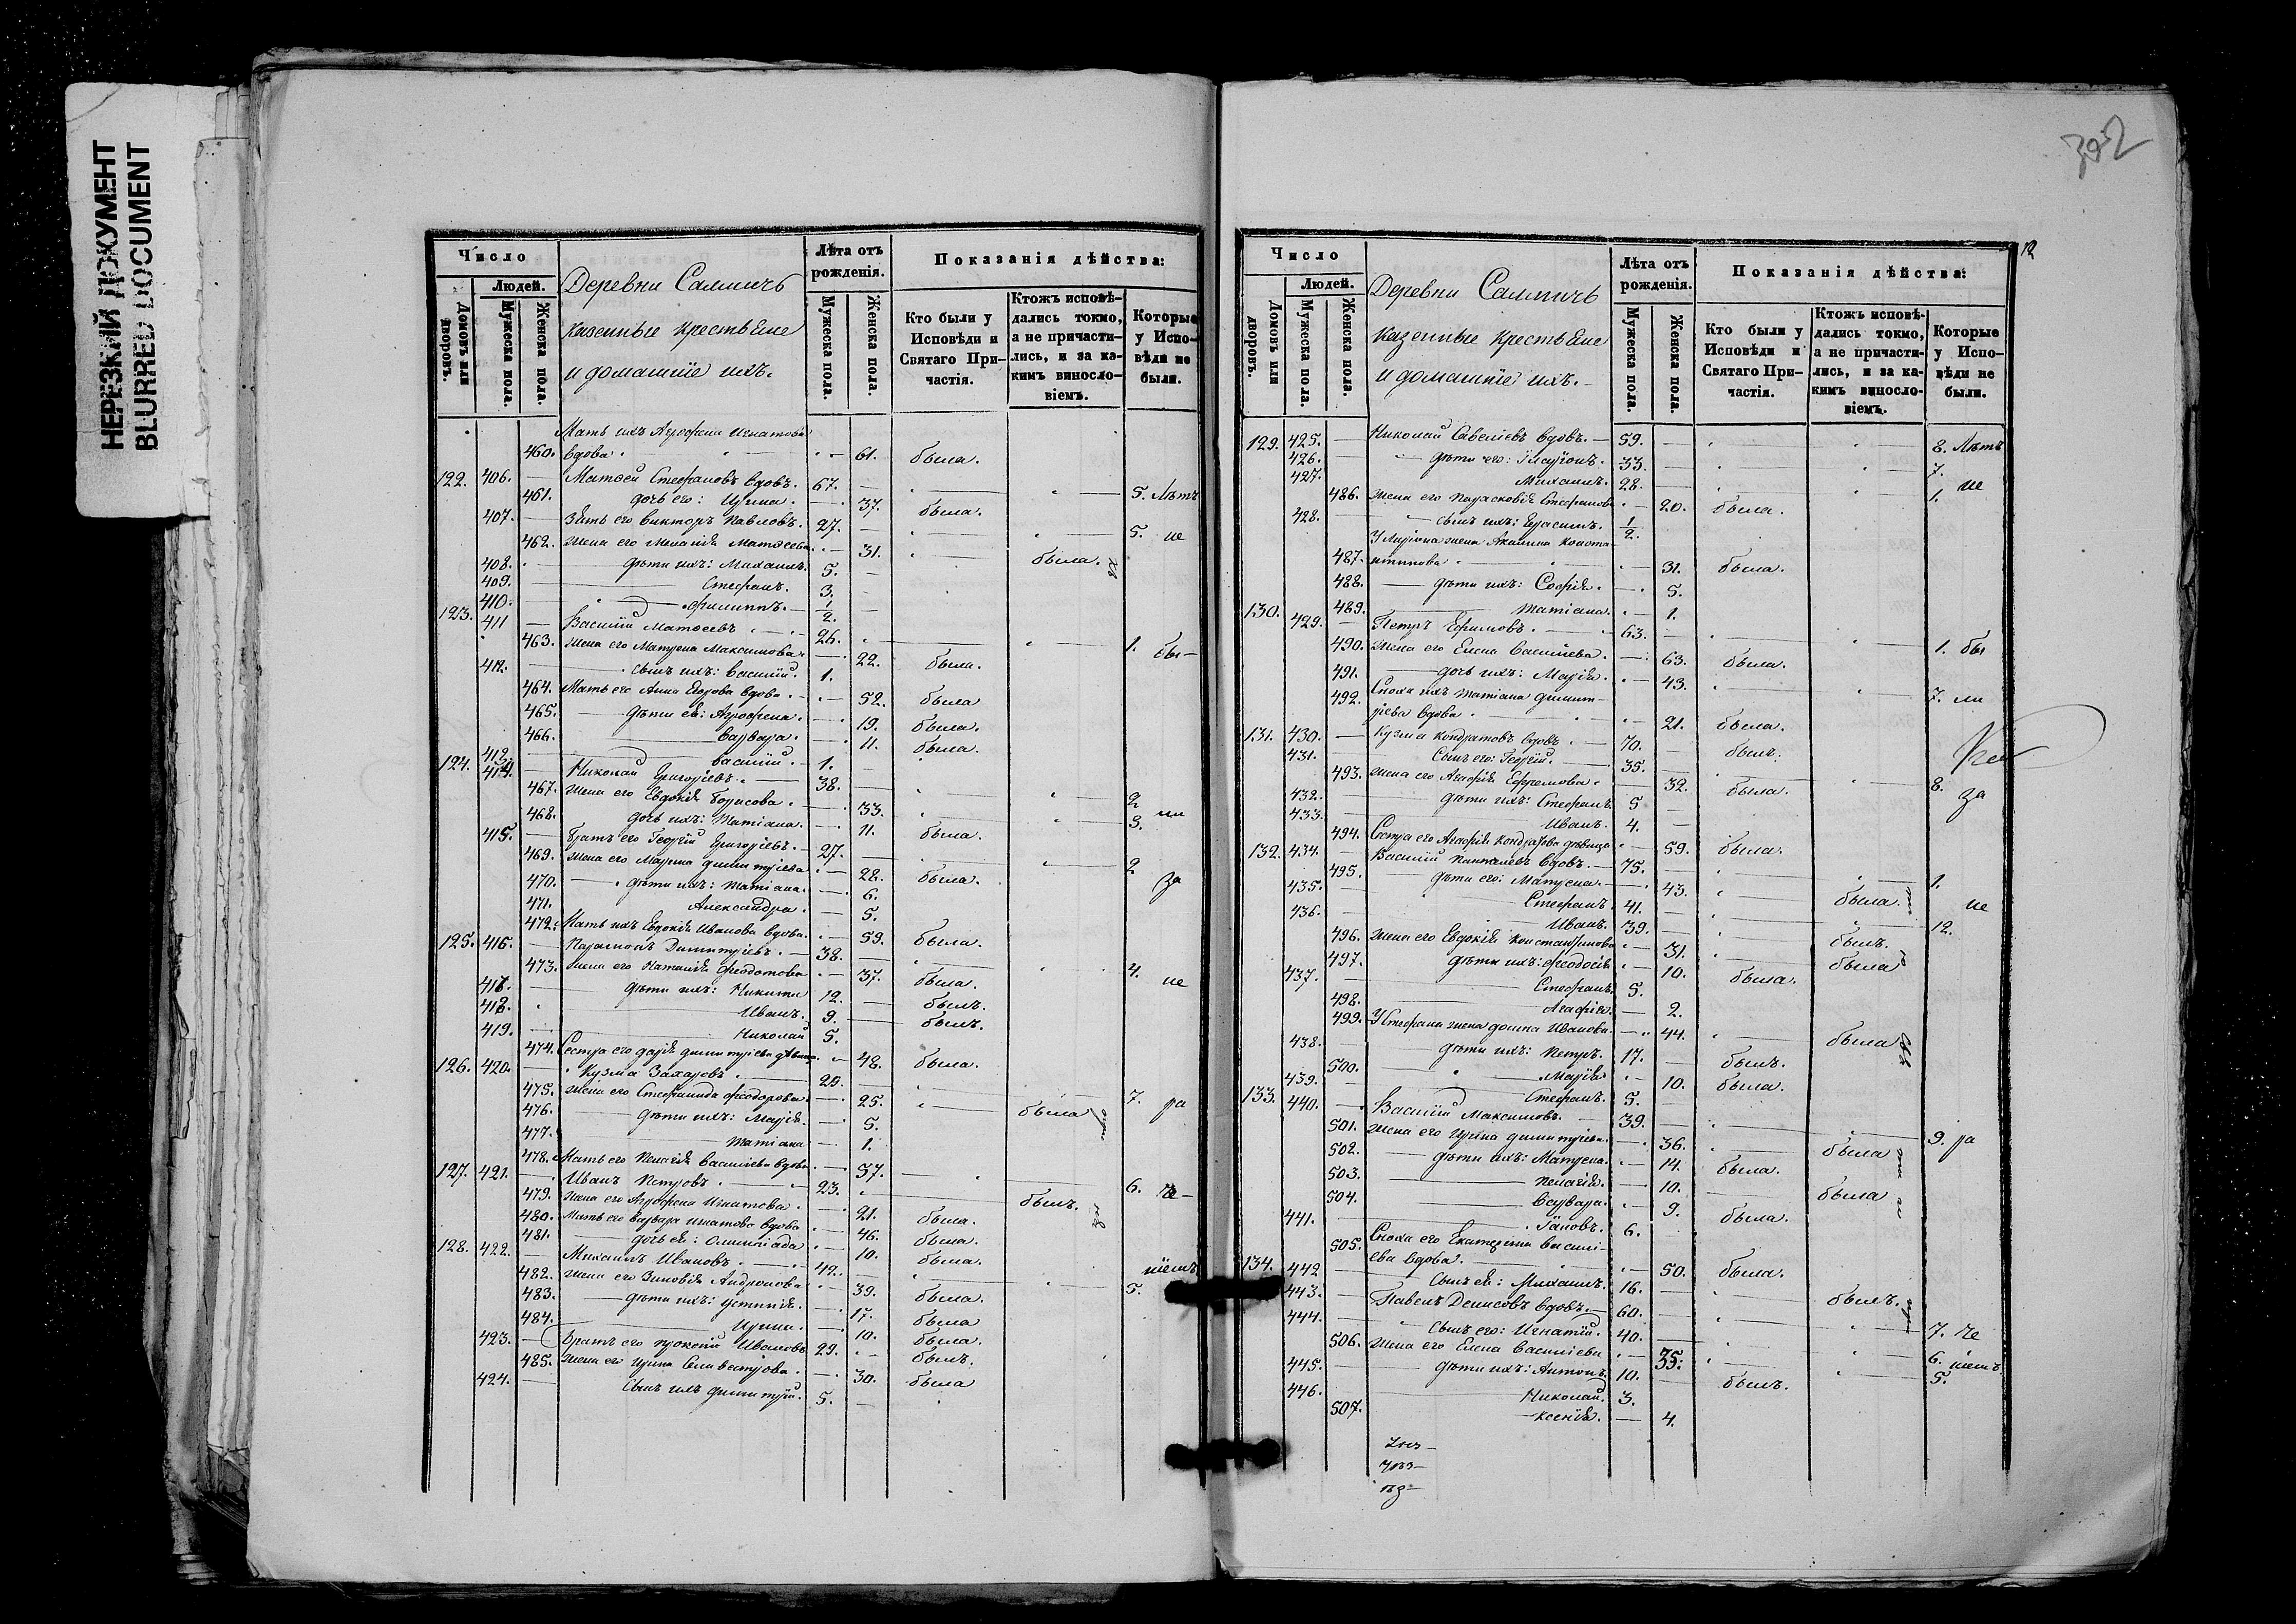 НЕРЕЗКИЙ ДОКУМЕНТ
BLURRED DOCUMENT
Число
Людей.
Домовъ или дворовъ.
Мужеска пола.
Женска пола.
Деревни Салмичъ
казенные крестьяне
и домашніе ихъ.
Лѣта отъ рожденія.
Мужеска пола.
Женска пола.
Показанія дѣйства:
Кто были у Исповѣди и Святаго Причастія.
Ктожъ исповѣдались токмо, а не причастились, и за какимъ винословіемъ.
Которые у Исповѣди не были.
Мать ихъ Агрофена Игнатова
460. вдова 61. была.
122. 406. Матѳей Стефановъ вдовъ. 67. 5. Лѣтъ
461. дочь его: Ирина. 37. была.
407. Зять его Викторъ Павловъ. 27. 5. не
462. Жена его Меланія Матѳеева. 31. была.
408. дѣти ихъ: Михаилъ. 5.
409. Стефанъ. 3.
410. Филиппъ. 1/2.
123. 411 Василій Матѳеевъ 26. 1. бы-
463. Жена его Матрена Максимова. 22. была.
412. сынъ ихъ: Василій. 1.
464. Мать его Анна Егорова вдова. 52. была
465. дѣти ея: Агрофена. 19. была.
466. Варвара. 11. была.
413. Василій. 1.
124. 414. Николай Григорьевъ. 38. 2
467. Жена его Евдокія Борисова. 33. 3. ли
468. дочь ихъ: Татіана. 11. была.
415. Братъ его Георгій Григорьевъ. 27. 2
469. Жена его Марина Димитріева 28. была. за
470. дѣти ихъ: Татіана. 6.
471. Александра. 5.
472. Мать ихъ Евдокія Иванова вдова. 59. была.
125. 416. Парамонъ Димитріевъ. 38. 4.
473. Жена его Наталія Ѳеодотова 37. была. не
417. дѣти ихъ: Никита 12. былъ.
418. Иванъ. 9. былъ.
419. Николай 5.
474. Сестра его Дарія Димитріева дѣвица 48. была.
126. 420. Кузма Захаровъ. 29. 7. ра
475. Жена его Стефанида Ѳеодорова. 25. была
476. дѣти ихъ: Марія. 5.
477. Татіана 1.
478. Мать его Пелагія Васильева вдова. 57.
127. 421. Иванъ Петровъ. 23. былъ. 6. че-
479. Жена его Агрофена Игнатова. 21. была.
480. Мать его Варвара Игнатова вдова 46. была.
481. дочь ея: Олимпіада 10. была.
128. 422. Михаилъ Ивановъ. 42. ніемъ 5.
482. Жена его Зиновія Андронова 39. была.
483. дѣти ихъ: Устинія. 17. была
484. Ирина. 10. была.
423. Братъ его Прокопій Ивановъ 29. былъ.
485. Жена его Ирина Селивестрова. 30. была
424. Сынъ ихъ Димитрій. 5.
12
Число
Людей.
Домовъ или дворовъ.
Мужеска пола.
Женска пола.
Деревни Салмичъ
казенные крестьяне
и домашніе ихъ.
Лѣта отъ рожденія.
Мужеска пола.
Женска пола.
Показанія дѣйства:
Кто были у Исповѣди и Святаго Причастія.
Ктожъ исповѣдались токмо, а не причастились, и за какимъ винословіемъ.
Которые у Исповѣди не были.
129. 425. Николай Савеліевъ вдовъ. 59. 8. Лѣтъ
426. дѣти его: Иларіонъ. 33. 7.
427. Михаилъ. 28. 1. не
486. Жена его Парасковія Стефанова 20. была.
428. сынъ ихъ: Герасимъ. 1/2.
У Ларіона жена Акилина Конста-
487. нтинова 31. была.
488. дѣти ихъ: Софія. 5.
489. Татіана. 1.
130. 429. Петръ Ефимовъ. 63. 1. бы
490. Жена его Елена Васильева. 63. была.
491. дочь ихъ: Марія. 43. 7. ли
492. Сноха ихъ Татіана Димит-
ріева вдова 21. была.
131. 430. Кузма Кондратовъ вдовъ. 70. былъ.
431. Сынъ его: Георгій. 35. 8. за
493. Жена его Агафія Ефремова. 32. была.
432. дѣти ихъ: Стефанъ. 5
433. Иванъ. 4.
494. Сестра его Агафія Кондратова дѣвица 59. была.
132. 434. Василій Пантелеевъ вдовъ. 75. 1.
495. дѣти его: Матрена. 43. была. не
435. Стефанъ. 41. 12.
436. Иванъ. 39. былъ.
496. Жена его Евдокія Константинова 31. была
497. дѣти ихъ: Ѳеодосія 10. была.
437. Стефанъ. 5.
498. Агафія. 2.
499. У Стефана жена Домна Иванова. 44. была
438. дѣти ихъ: Петръ. 17. былъ.
500. Марія 10. была.
439. Стефанъ. 5.
133. 440. Василій Максимовъ. 39. 9. ра
501. Жена его Ирина Димитріева. 36. была
502. дѣти ихъ: Матрена. 14. была.
503. Пелагія. 10. была
504. Варвара. 9. была.
441. Іаковъ. 6.
505. Сноха его Екатерина Василі-
ева вдова. 50. была.
134. 442 Сынъ ея: Михаилъ. 16. былъ.
443. Павелъ Денисовъ вдовъ. 60. 7. че
444. Сынъ его: Игнатій. 40. 6. ніемъ
506. Жена его Елена Васильева 35. 5.
445. дѣти ихъ: Антонъ. 10. былъ.
446. Николай. 3.
507. Ксенія. 4.